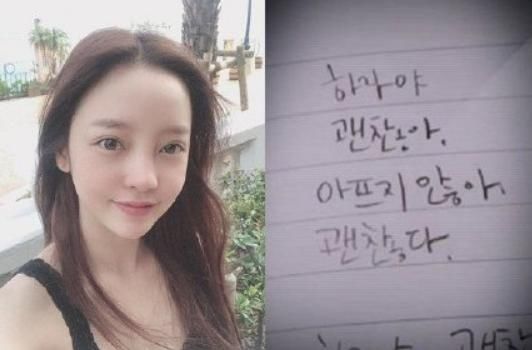 하라야
괜찮아.
아프지 않아.
괜찮다.